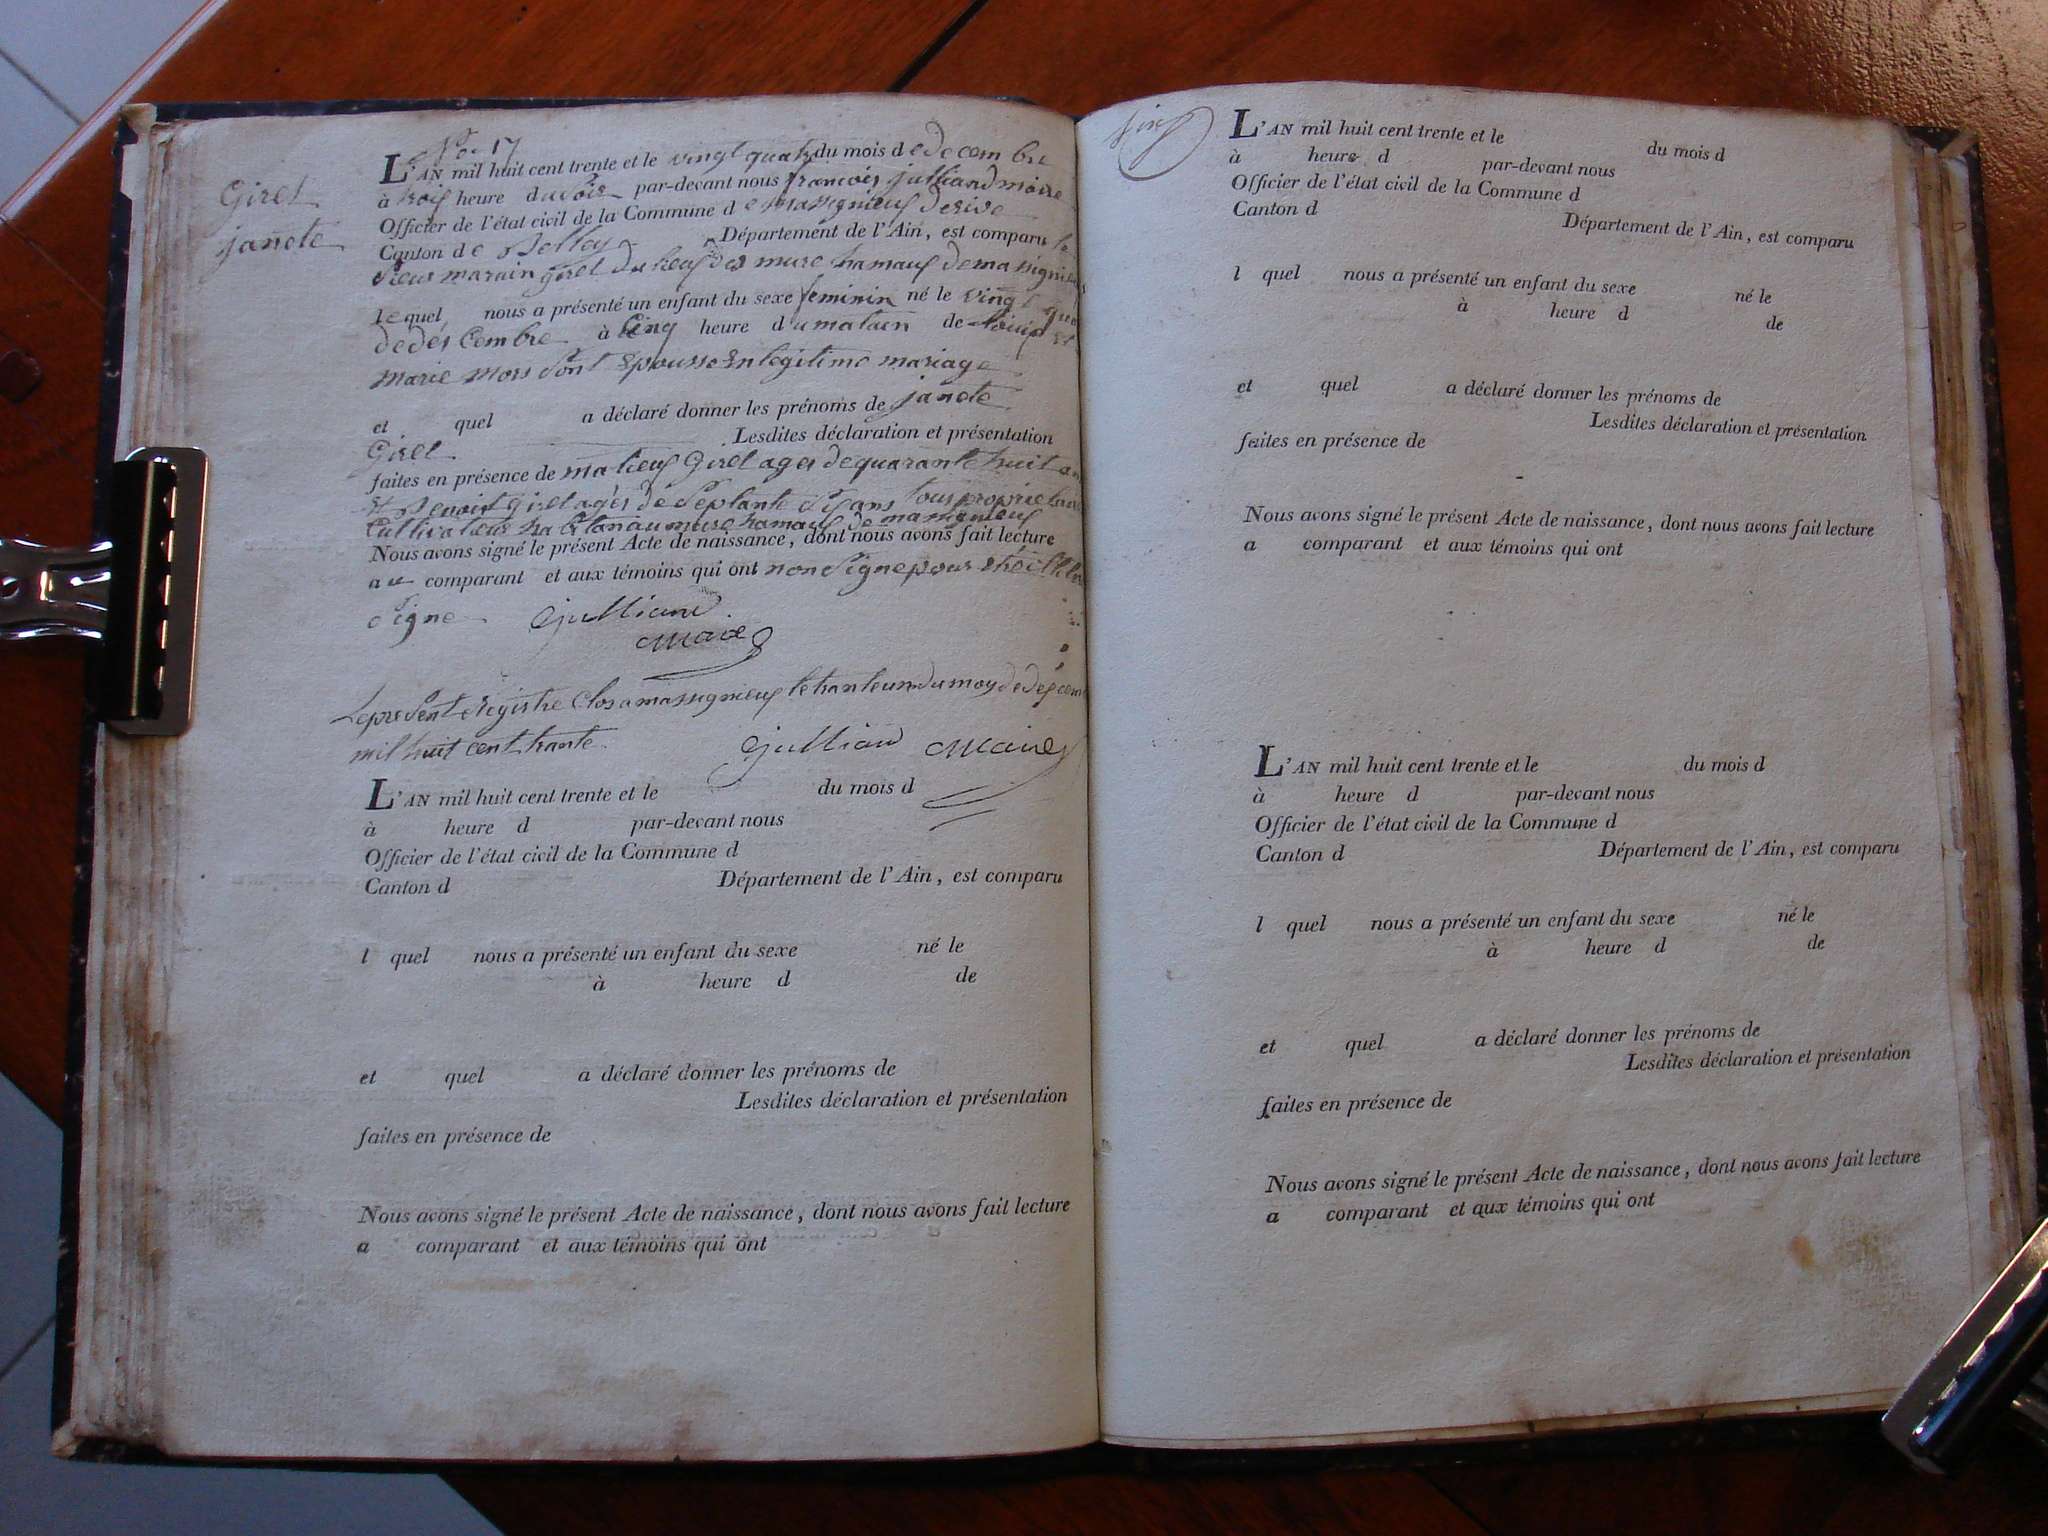 No. 17
L'AN mil huit cent trente et le vingt quatr du mois de decembre
Giret
janete
à trois heure du soir par-devant nous francois julliand maire
Officier de l'état civil de la Commune de massignieux derive
Canton de Belley Département de l'Ain, est comparu le
sieur marain giret du lieux des mure hamaux de massignieu
lequel nous a présenté un enfant du sexe feminin né le vingt qua
de dés cembre à cinq heure du matain de et
marie mors sont epousse en legitime mariage
et quel a déclaré donner les prénoms de janete
Giret Lesdites déclaration et présentation
faites en présence de matieux Giret ages de quarante huit an
et Benoit giret agés de septante sis ans tous proprietaire
cultivateur habitan au mure hamaux de massignieux
Nous avons signé le présent Acte de naissance, dont nous avons fait lecture
au comparant et aux témoins qui ont non signe pour
signe julliand
Maire
Le present registre clos a massignieux le trante un du moy de dés cem
mil huit cent trante julliand Maire
L'AN mil huit cent trente et le du mois d
à heure d par-devant nous
Officier de l'état civil de la Commune d
Canton d Département de l'Ain, est comparu
l quel nous a présenté un enfant du sexe né le
à heure d de
et quel a déclaré donner les prénoms de
Lesdites déclaration et présentation
faites en présence de
Nous avons signé le présent Acte de naissance, dont nous avons fait lecture
a comparant et aux témoins qui ont
L'AN mil huit cent trente et le du mois d
à heure d par-devant nous
Officier de l'état civil de la Commune d
Canton d Département de l'Ain, est comparu
l quel nous a présenté un enfant du sexe né le
à heure d de
et quel a déclaré donner les prénoms de
Lesdites déclaration et présentation
faites en présence de
Nous avons signé le présent Acte de naissance, dont nous avons fait lecture
a comparant et aux témoins qui ont
L'AN mil huit cent trente et le du mois d
à heure d par-devant nous
Officier de l'état civil de la Commune d
Canton d Département de l'Ain, est comparu
l quel nous a présenté un enfant du sexe né le
à heure d de
et quel a déclaré donner les prénoms de
Lesdites déclaration et présentation
faites en présence de
Nous avons signé le présent Acte de naissance, dont nous avons fait lecture
a comparant et aux témoins qui ont